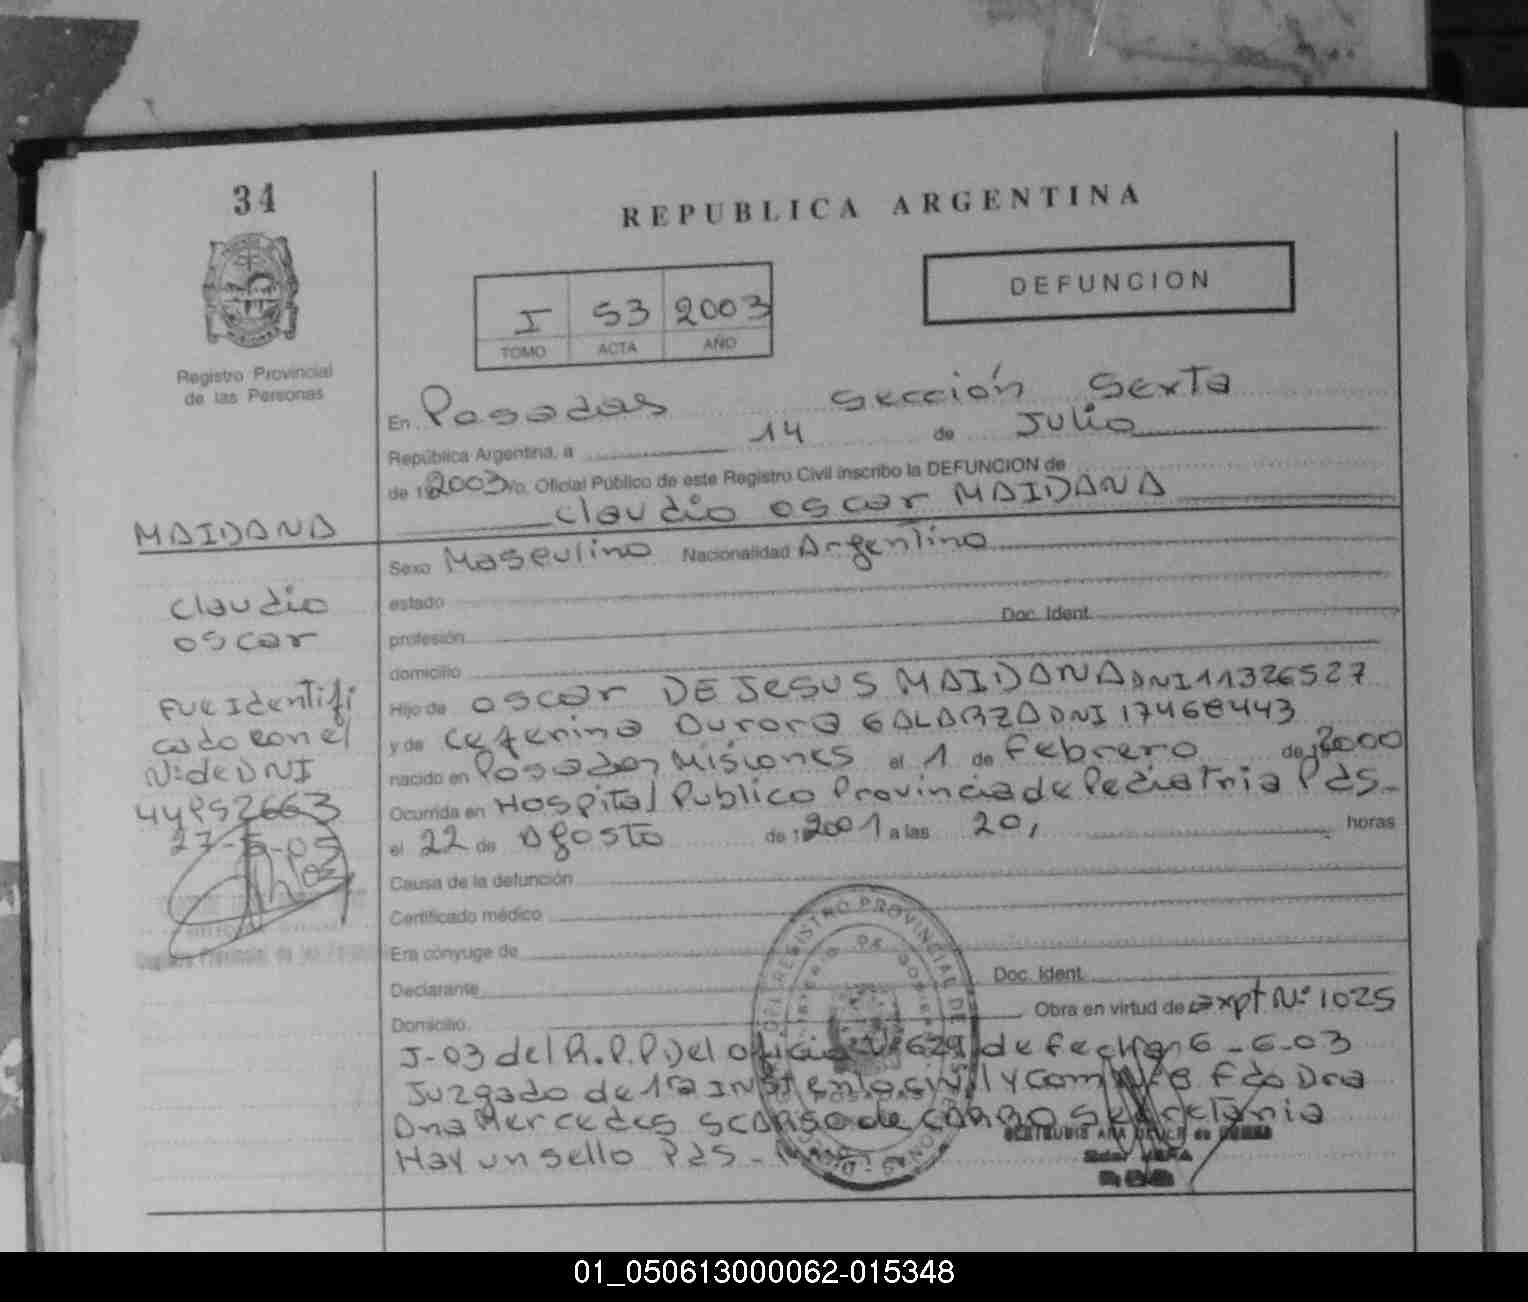 34
REPUBLICA ARGENTINA
DEFUNCION
I 53 2003
TOMO ACTA AÑO
Registro Provincial
de las Personas
En Posadas Sección Sexta
República Argentina, a 14 de Julio
de 2003 yo, Oficial Público de este Registro Civil inscribo la DEFUNCION de
Claudio Oscar MAIDANA
MAIDANA
Claudio
Oscar
Fue Identifi
cado con el
Nº de DNI
Sexo Masculino Nacionalidad Argentino
estado
profesión Doc. Ident.
domicilio
Hijo de Oscar DE JESUS MAIDANA DNI 11326527
y de Ceferina Aurora GALARZA DNI 17468443
nacido en Posadas Misiones el 1 de Febrero de 2000
Ocurrida en Hospital Publico Provincia de Pediatria Pds.
el 22 de Agosto de 2001 a las 20, horas
Causa de la defunción
Certificado médico
Era cónyuge de
Declarante Doc. Ident.
Domicilio Obra en virtud de expt Nº 1025
J-03 del R.P.P. del oficio Nº 629 de fecha 6-6-03
Juzgado de 1ra Fdo Dra
Ana Mercedes de Secretaria
Hay un sello Pds-
REGISTRO PROVINCIAL DE
01_050613000062-015348